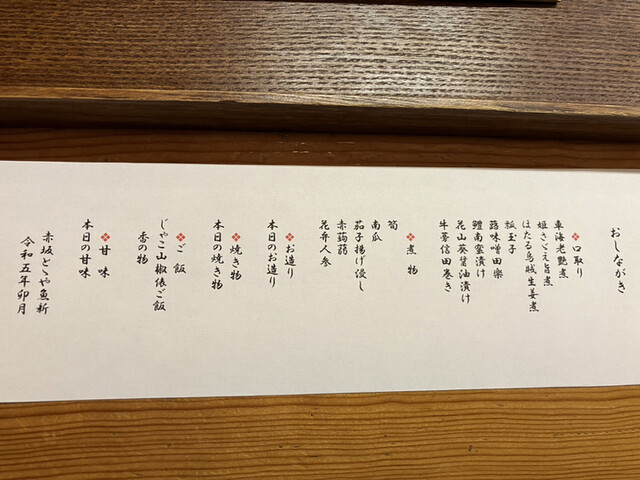 おしながき
口取り
車海老艶煮
姫さざえ旨煮
ほたる烏賊生姜煮
瓢玉子
蕗味噌田楽
鱧南蛮漬け
花山葵醤油漬け
牛蒡信田巻き
煮物
筍
南瓜
茄子揚げ浸し
赤蒟蒻
花弁人参
お造り
本日のお造り
焼き物
本日の焼き物
ご飯
じゃこ山椒俵ご飯
香の物
甘味
本日の甘味
赤坂とゝや魚新
令和五年卯月